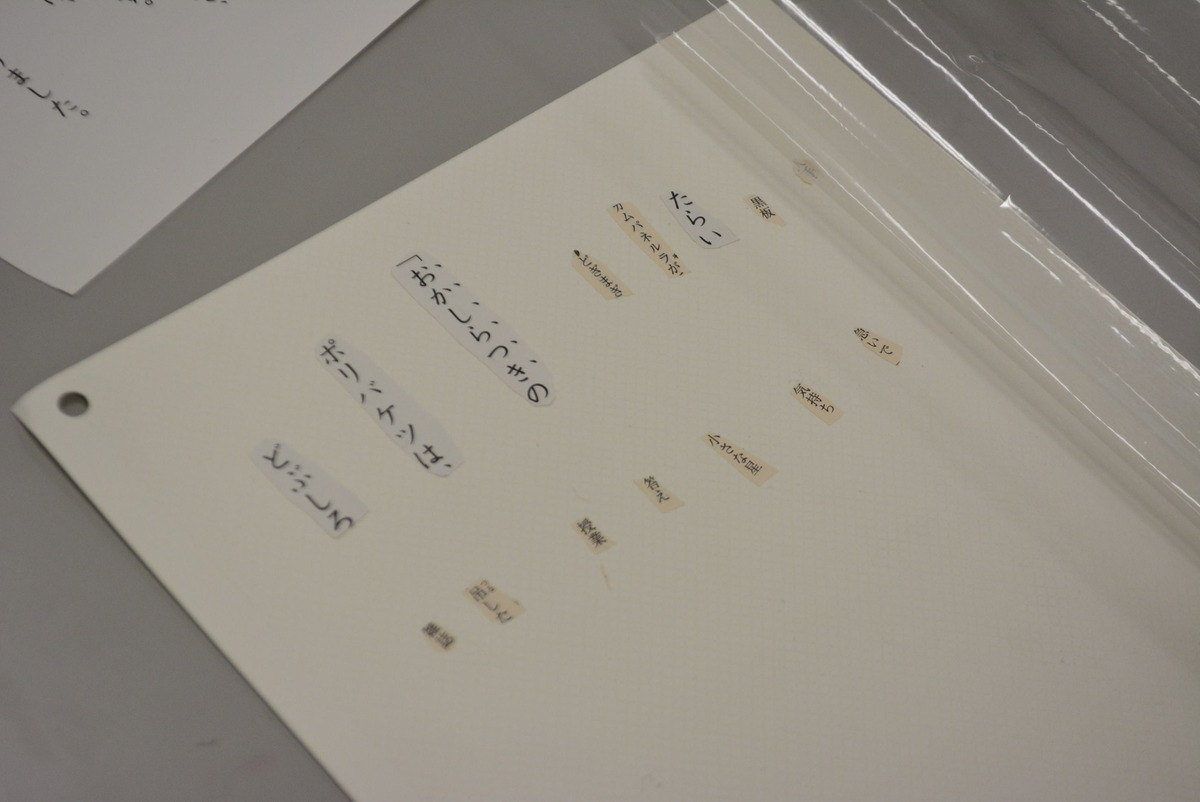 ました。
黒板
たらい
カムパネルラが
どぎまぎ
「おかしらつきの
ポリバケツは、
どぶしろ
急いで
気持ち
小さな星
答え
授業
吊した
雑誌